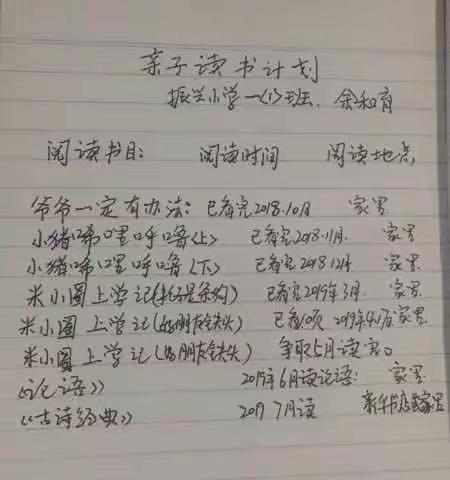 亲子读书计划
振兴小学一(1)班. 余和育
阅读书目: 阅读时间 阅读地点
爷爷一定有办法: 已看完2018.10月 家里
小猪唏哩呼噜<上> 已看完2018.11月. 家里
小猪唏哩呼噜(下) 已看完2018.12月 家里
米小圈上学记( ) 已看完2019年3月. 家里
米小圈上学记(好朋友铁头) 2019年4月 家里
米小圈上学记(好朋友铁头) 争取5月读完。
《论语》 2019年6月读论语: 家里
《古诗经典》 2019 7月读 新华书店或家里